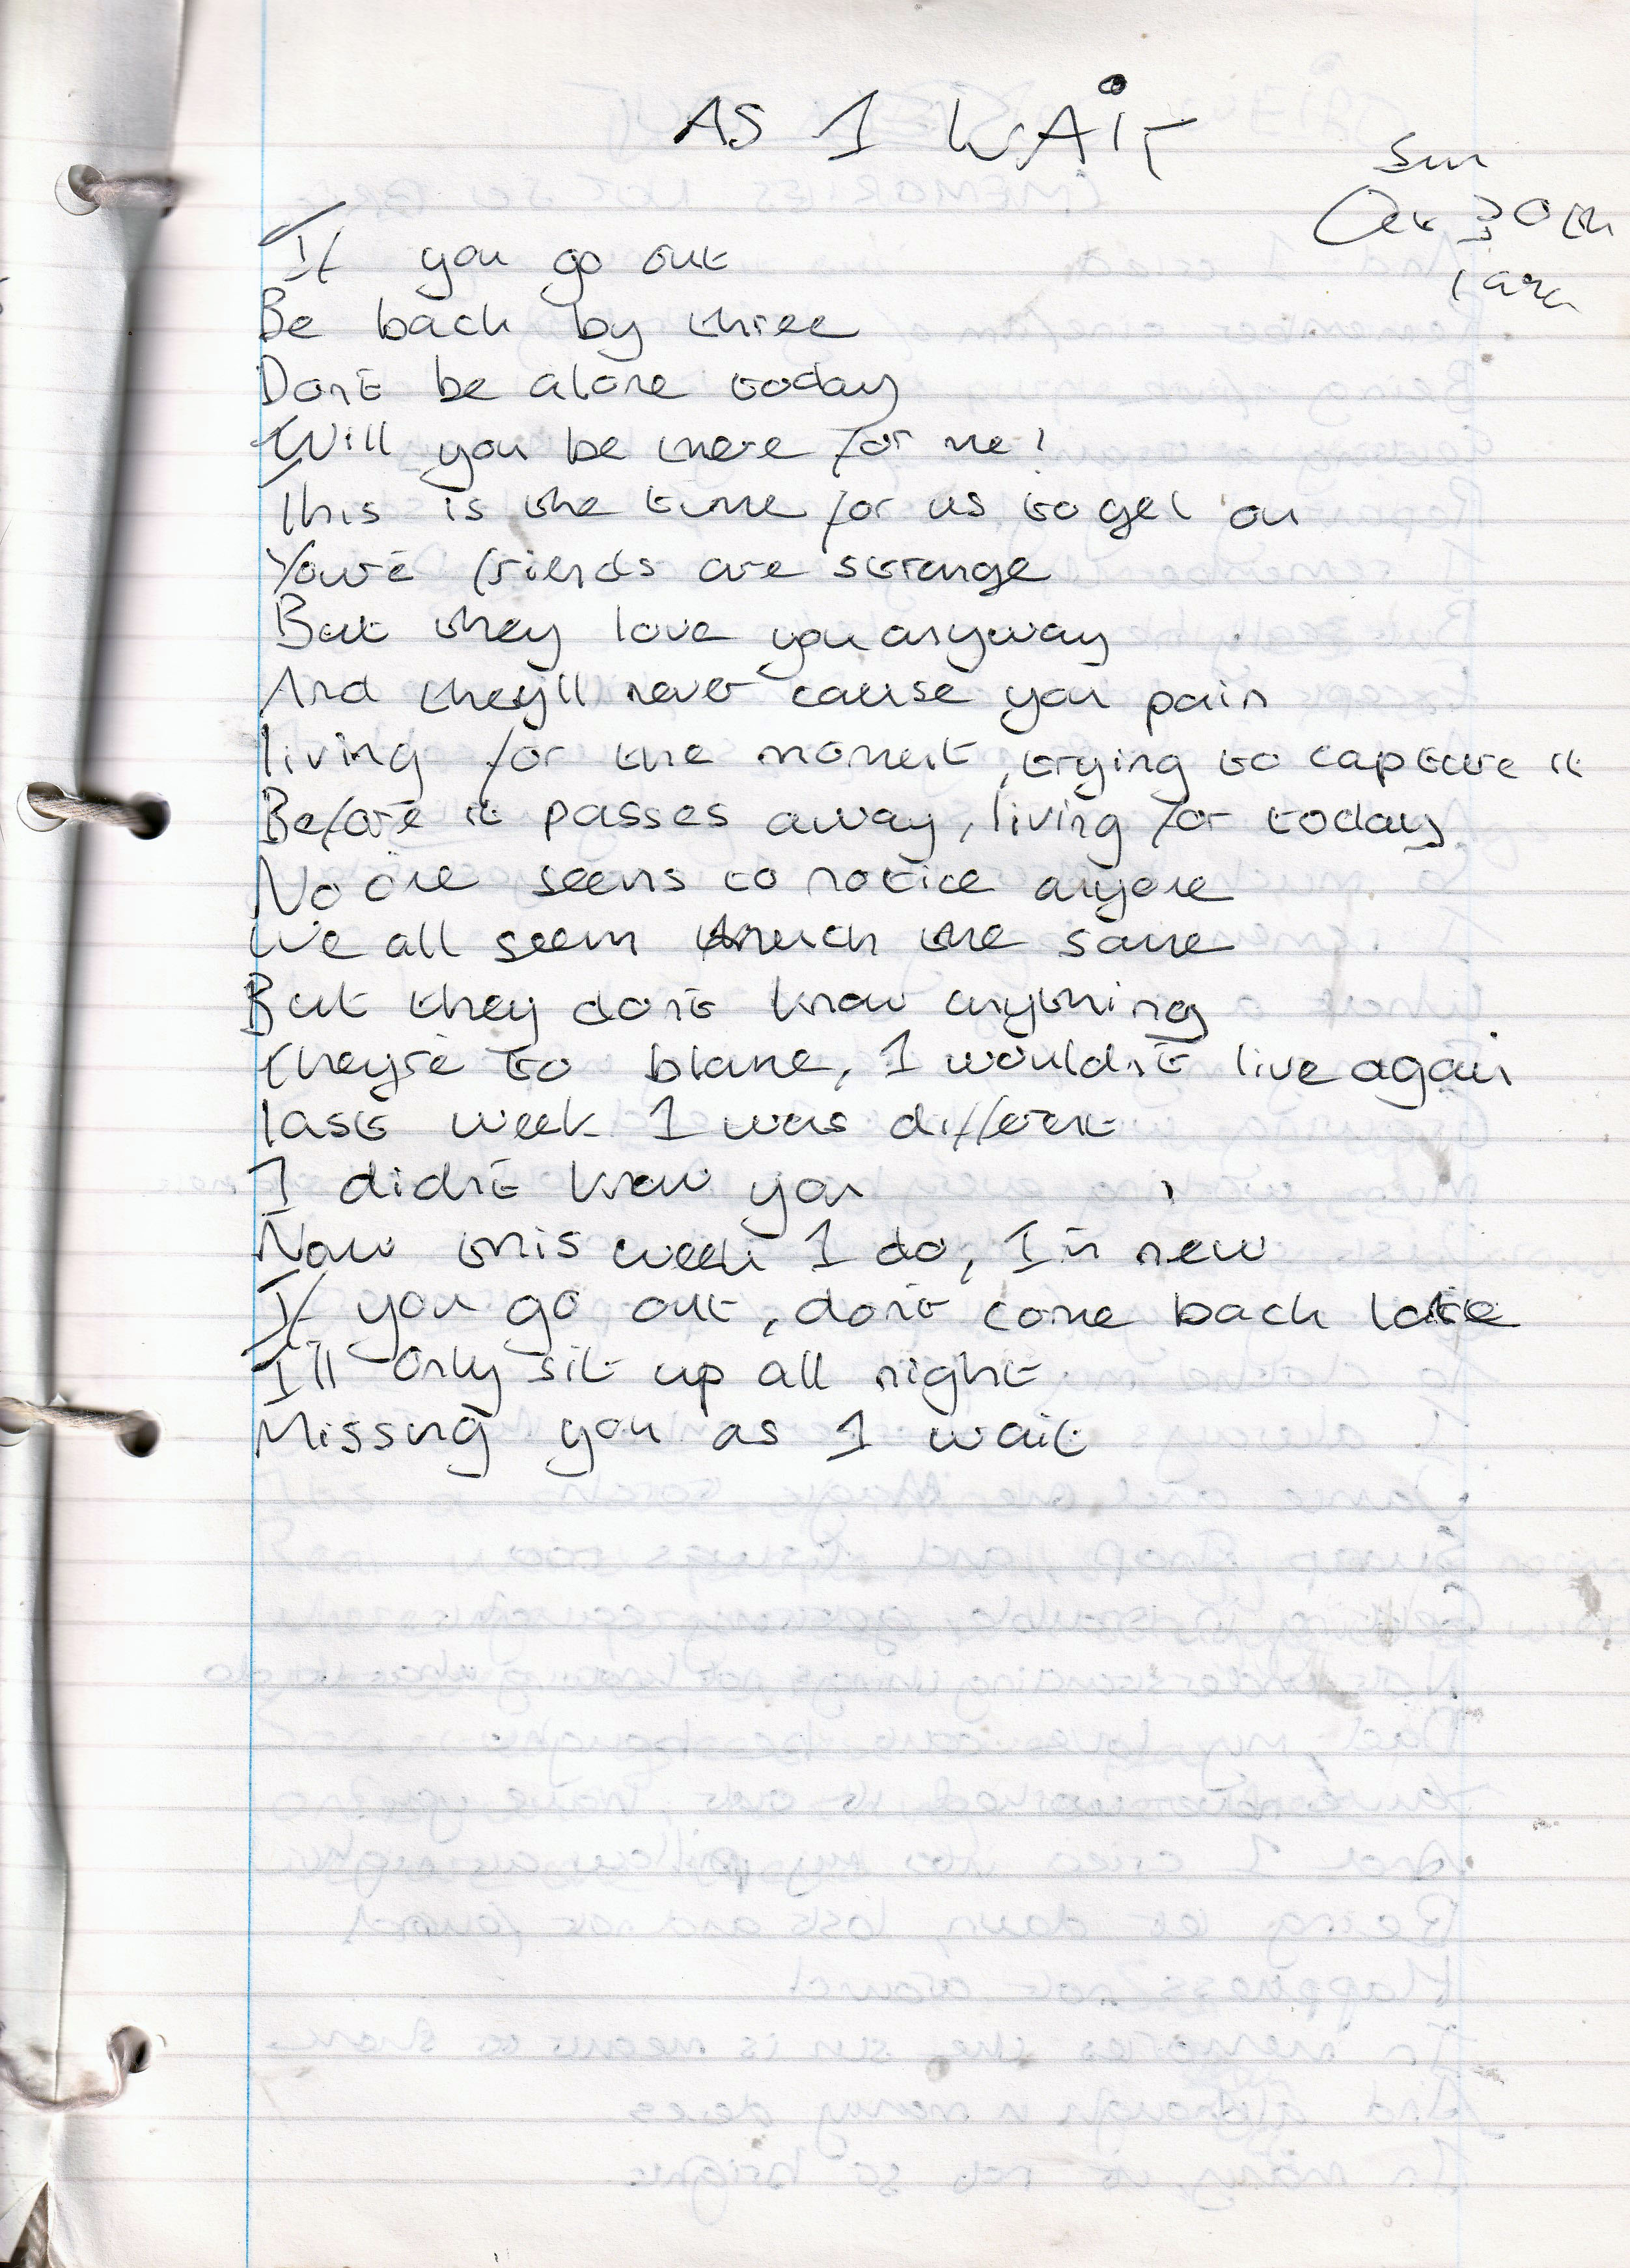 AS I WAIT
Sun
Oct 30th
1am
If you go out
Be back by three
Don't be alone today
Will you be there for me!
This is the time for us to get on
Your'e friends are strange
But they love you anyway
And they'll never cause you pain
living for the moment, trying to capture it
Before it passes away, living for today
No one seems to notice anyone
We all seem much the same
But they don't know anything
they're to blame, I wouldn't live again
last week I was different
I didn't know you
Now this week I do, I'm new
If you go out, don't come back late
I'll only sit up all night
Missing you as I wait